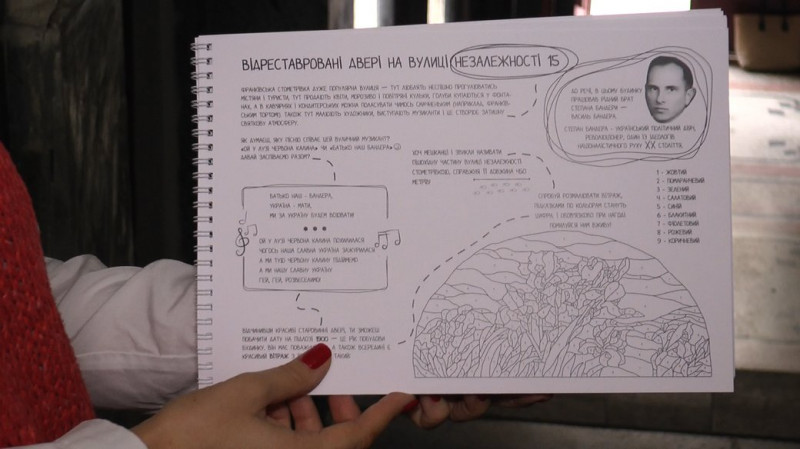 ВІДРЕСТАВРОВАНІ ДВЕРІ НА ВУЛИЦІ НЕЗАЛЕЖНОСТІ 15
ФРАНКІВСЬКА СТОМЕТРІВКА ДУЖЕ ПОПУЛЯРНА ВУЛИЦЯ — ТУТ ЛЮБЛЯТЬ НЕСПІШНО ПРОГУЛЮВАТИСЬ
МІСТЯНИ І ТУРИСТИ, ТУТ ПРОДАЮТЬ КВІТИ, МОРОЗИВО І ПОВІТРЯНІ КУЛЬКИ, ГОЛУБИ КУПАЮТЬСЯ У ФОНТА-
НАХ, А В КАВ'ЯРНЯХ І КОНДИТЕРСЬКИХ МОЖНА ПОЛАСУВАТИ ЧИМОСЬ СМАЧНЕНЬКИМ (НАПРИКЛАД, ФРАНКІВ-
СЬКИМ ТОРТОМ). ТАКОЖ ТУТ МАЛЮЮТЬ ХУДОЖНИКИ, ВИСТУПАЮТЬ МУЗИКАНТИ І ЦЕ СТВОРЮЄ ЗАТИШНУ
СВЯТКОВУ АТМОСФЕРУ.
ДО РЕЧІ, В ЦЬОМУ БУДИНКУ
ПРАЦЮВАВ РІДНИЙ БРАТ
СТЕПАНА БАНДЕРИ —
ВАСИЛЬ БАНДЕРА.
СТЕПАН БАНДЕРА - УКРАЇНСЬКИЙ ПОЛІТИЧНИЙ ДІЯЧ,
РЕВОЛЮЦІОНЕР, ОДИН ІЗ ІДЕОЛОГІВ
НАЦІОНАЛІСТИЧНОГО РУХУ XX СТОЛІТТЯ.
ЯК ДУМАЄШ, ЯКУ ПІСНЮ СПІВАЄ ЦЕЙ ВУЛИЧНИЙ МУЗИКАНТ?
«ОЙ У ЛУЗІ ЧЕРВОНА КАЛИНА» ЧИ «БАТЬКО НАШ БАНДЕРА»
ДАВАЙ ЗАСПІВАЄМО РАЗОМ?
ХОЧ МЕШКАНЦІ І ЗВИКЛИ НАЗИВАТИ
ПІШОХІДНУ ЧАСТИНУ ВУЛИЦІ НЕЗАЛЕЖНОСТІ
СТОМЕТРІВКОЮ, СПРАВЖНЯ ЇЇ ДОВЖИНА 460
МЕТРІВ!
БАТЬКО НАШ - БАНДЕРА,
УКРАЇНА - МАТИ,
МИ ЗА УКРАЇНУ БУДЕМ ВОЮВАТИ!
ОЙ У ЛУЗІ ЧЕРВОНА КАЛИНА ПОХИЛИЛАСЯ
ЧОГОСЬ НАША СЛАВНА УКРАЇНА ЗАЖУРИЛАСЯ
А МИ ТУЮ ЧЕРВОНУ КАЛИНУ ПІДІЙМЕМО
А МИ НАШУ СЛАВНУ УКРАЇНУ
ГЕЙ, ГЕЙ, РОЗВЕСЕЛИМО!
СПРОБУЙ РОЗМАЛЮВАТИ ВІТРАЖ,
ПІДКАЗКАМИ ПО КОЛЬОРАМ СТАНУТЬ
ЦИФРИ, І ОБОВ'ЯЗКОВО ПРИ НАГОДІ
ПОМИЛУЙСЯ НИМ ВЖИВУ!
1 - ЖОВТИЙ
2 - ПОМАРАНЧЕВИЙ
3 - ЗЕЛЕНИЙ
4 - САЛАТОВИЙ
5 - СИНІЙ
6 - БЛАКИТНИЙ
7 - ФІОЛЕТОВИЙ
8 - РОЖЕВИЙ
9 - КОРИЧНЕВИЙ
ВІДЧИНИВШИ КРАСИВІ СТАРОВИННІ ДВЕРІ, ТИ ЗМОЖЕШ
ПОБАЧИТИ ДАТУ НА ПІДЛОЗІ 1900 — ЦЕ РІК ПОБУДОВИ
БУДИНКУ, ВІН МАЄ А ТАКОЖ ВСЕРЕДИНІ Є
КРАСИВИЙ ВІТРАЖ